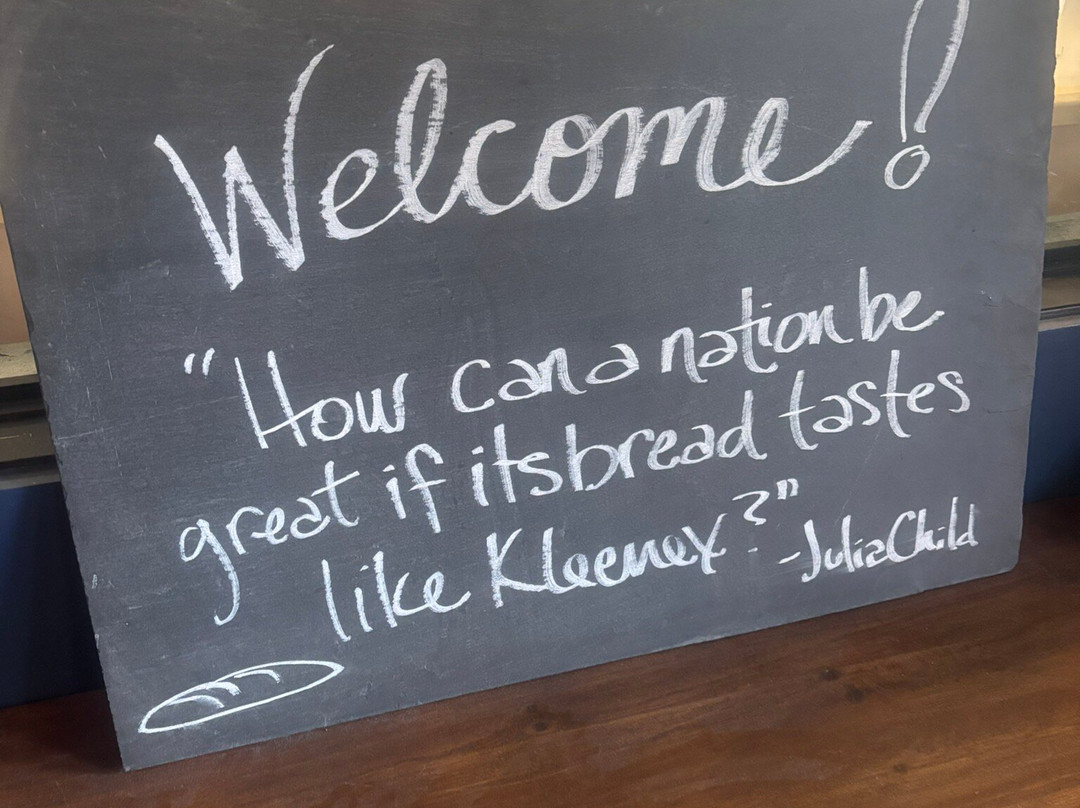 Welcome!
"How can a nation be
great if its bread tastes
like Kleenex?" -Julia Child